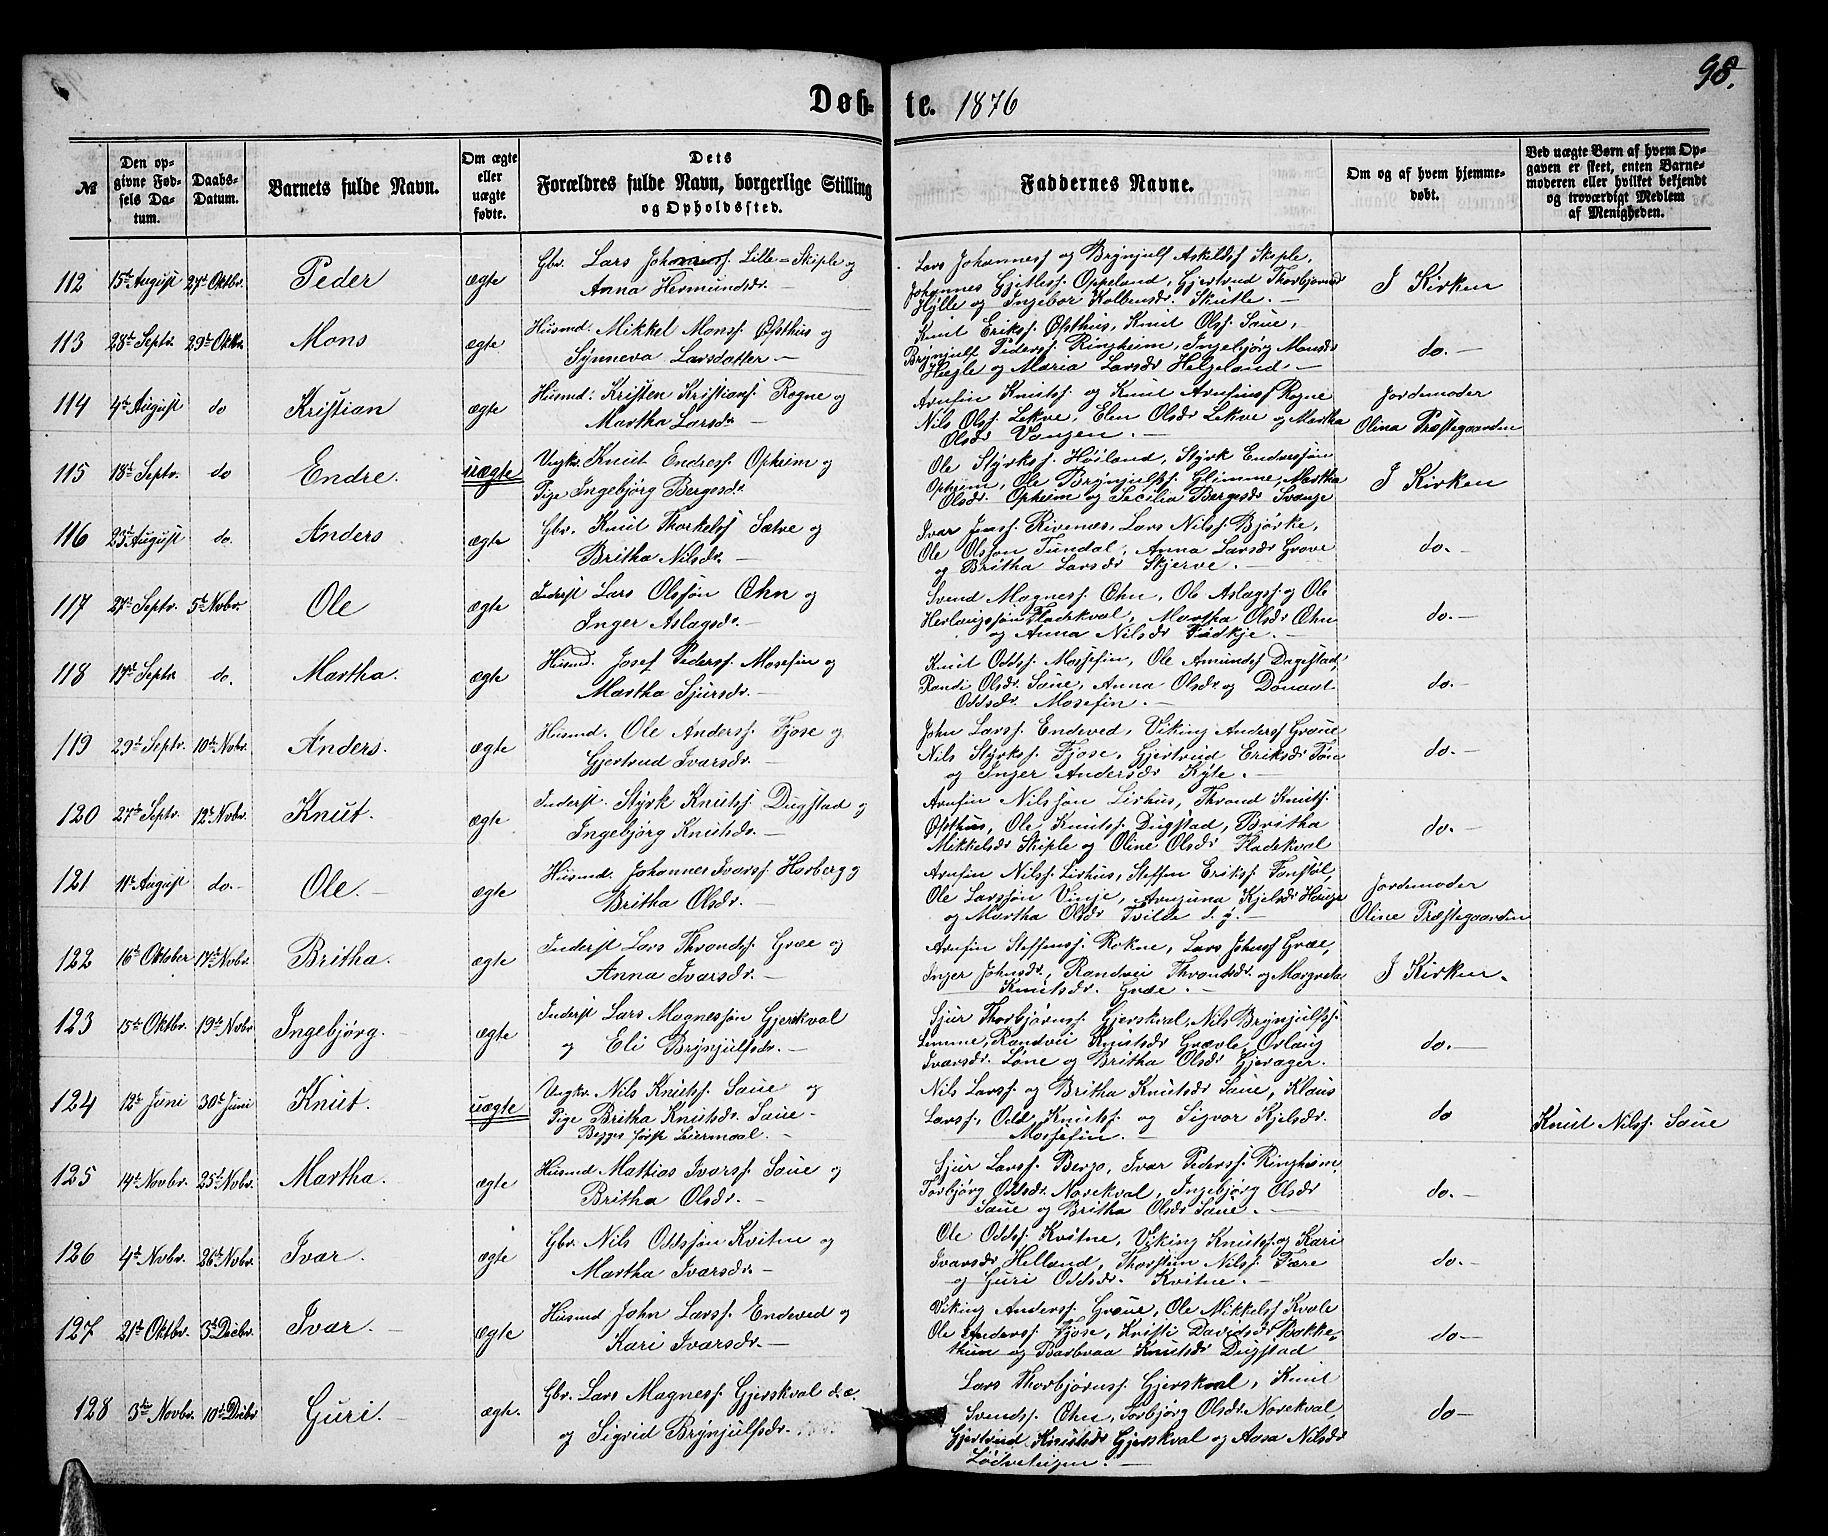 98.
Døb-te. 1876
№
Den opgivne Fødsels Datum.
Daabs-Datum.
Barnets fulde Navn.
Om ægte eller uægte fødte.
Dets Forældres fulde Navn, borgerlige Stilling og Opholdssted.
Faddernes Navne.
Om og af hvem hjemmedøbt.
Ved uægte Børn af hvem Opgaven er skeet, enten Barnemoderen eller hvilket bekjendt og troværdigt Medlem af Menigheden.
112 15de August 27de Oktbr. Peder ægte Gbr. Lars Johannesf. Lille=Skiple og
Anna Hermundsdr.
Lars Johannesf og Brynjulf Askildsf Skiple,
Johannes Gjellesf. Oppeland, Gjertrud Thorbjørnsdr
Hylle og Ingebor Kolbensdr. Skutle. —
I Kirken
113 28de Septr. 29de Oktbr. Mons ægte Husmd. Mikkel Monsf. Østhus og
Synneva Larsdatter —
Knut Eriksf. Østhus, Knut Olsf. Saue,
Brynjulf Pedersf Ringheim, Ingebjørg Monsdr
Høyle og Maria Larsdr Helgeland. —
do. —
114 4de August do Kristian ægte Husmd. Kristen Kristiansf. Rogne og
Martha Larsdr —
Arnfin Knutsf. og Knut Arnfinsf Rogne
Nils Olsf. Lekve, Elen Olsdr Lekve og Martha
Olsdr Vangen. —
Jordemoder
Olina Præstegaarden
115 18de Septr. do Endre. uægte Ungkr. Knut Endresf. Opheim og
Pige Ingebjørg Bergesdr.
Ole Styrksf. Høiland, Styrk Endersøn
Opheim, Ole Brynjulfsf. Glimme, Martha
Olsdr. Opheim og Secilia Bergesdr Svange
I Kirken
116 23de August do. Anders ægte Gbr. Knut Thorkelsf Sætre og
Britha Nilsdr. —
Ivar Jensf. Rivenæs, Lars Nilsf. Bjørke,
Ole Olsøn Tundal, Anna Larsdr Grove
og Britha Larsdr Skjerve. —
do. —
117 27de Septr. 5te Novbr. Ole ægte Inderst Lars Olsøn Øhn og
Inger Aslagsdr. —
Svend Magnesf. Øhn, Ole Aslagsf. og Ole
Herlaugsøn Fladekval, Martha Olsdr Øhn
og Anna Nilsdr Tødkje. —
do. —
118 17de Septr do. Martha. ægte Husmd. Josef Pedersf. Mosefin og
Martha Sjursdr. —
Knut Oddsf. Mossefin, Ole Amundsf Dagestad,
Randi Olsdr. Saue, Anna Olsdr og Donaat
Oddsdr. Mosefin. —
do. —
119 29de Septr. 10de Novbr. Anders. ægte Husmd. Ole Andersf. Fjose og
Gjertrud Ivarsdr. —
John Larsf. Endeved, Viking Andersf Graue
Nils Styrksf. Fjose, Gjertrud Eriksdr Tøn
og Inger Andersdr Kyte. —
do. —
120 27de Septr. 12te Novbr. Knut. ægte Inderst. Styrk Knutsf. Dugstad og
Ingebjørg Knutsdr. —
Arnfin Nilsøn Lirhus, Thrond Knutsf.
Østhus, Ole Knutsf. Dugstad, Britha
Mikkelsdr Skiple og Oline Olsdr Fladekval
do. —
121 11te August do. Ole. — ægte Husmd. Johannes Ivarsf. Horberg og
Britha Olsdr. —
Arnfin Nilsf. Lirhus, Steffen Eriksf. Fonstøl,
Ole Larsøn Vinje, Arnguna Kjelsdr Hauge
og Martha Olsdr Tvilde d. y. —
Jordemoder
Oline Præstegaarden
122 16de Oktober 17de Novbr. Britha. ægte Inderst Lars Throndsf. Græe og
Anna Ivarsdr. —
Arnfin Steffensf. Rokne, Lars Johnsf Græe,
Inger Johnsdr., Randvei Throndsdr. og Margreta
Knutsdr. Græe. —
I Kirken.
123 15de Oktbr. 19de Novbr. Ingebjørg. ægte Inderst Lars Magnesøn Gjerskval
og Eli Brynjulfsdr. —
Sjur Thorbjørnsf. Gjerskval, Nils Brynjulfsf.
Lemme, Randvei Knutsdr Grævle, Orlaug
Ivarsdr. Løne og Britha Olsdr. Gjerager.
do. —
124 12te Juni 30te Juni Knut. uægte Ungkr. Nils Knutsf. Saue og
Pige Britha Knutsdr. Saue.
Begges første Leiermaal. —
Nils Larsf. og Britha Knutsdr Saue, Klaus
Larsf., Odd Knutsf. og Sigvor Kjelsdr.
Mossefin. —
do
Knut Nilsf. Saue
125 14de Novbr. 25de Novbr. Martha. ægte Husmd. Mathias Ivarsf. Saue og
Britha Olsdr. —
Sjur Larsf. Bergo, Ivar Pedersf. Ringheim,
Torbjørg Oddsdr. Norekval, Ingebjørg Olsdr
Saue og Britha Olsdr Saue. —
do. —
126 4de Novbr. 26de Novbr. Ivar. ægte Gbr. Nils Oddsøn Kvitne og
Martha Ivarsdr. —
Ole Oddsf. Kvitne, Viking Knutsf. og Kari
Ivarsdr Helland, Thorstein Nilsf. Fære
og Guri Oddsdr. Kvitne. —
do. —
127 21de Oktbr. 3de Decbr. Ivar. — ægte Husmd John Larsf. Endeved og
Kari Ivarsdr. —
Viking Andersf. Graue, Ole Mikkelsf Kvale
Ole Andersf. Fjose, Kristi Davidsdr Bakke-
thun og Barbraa Knutsdr Dugstad
do —
128 3die Novbr. 10de Decbr Guri. — ægte. Gbr. Lars Magnesf. Gjerskval d.æ.
og Sigrid Brynjulfsdr.
Lars Thorbjørnsf. Gjerskval, Knut
Svendsf. Øhn, Torbjørg Olsdr Norekval,
Gjertrud Knutsdr Gjerskval og Aasa Nilsdr
Lødveteigen. —
do —